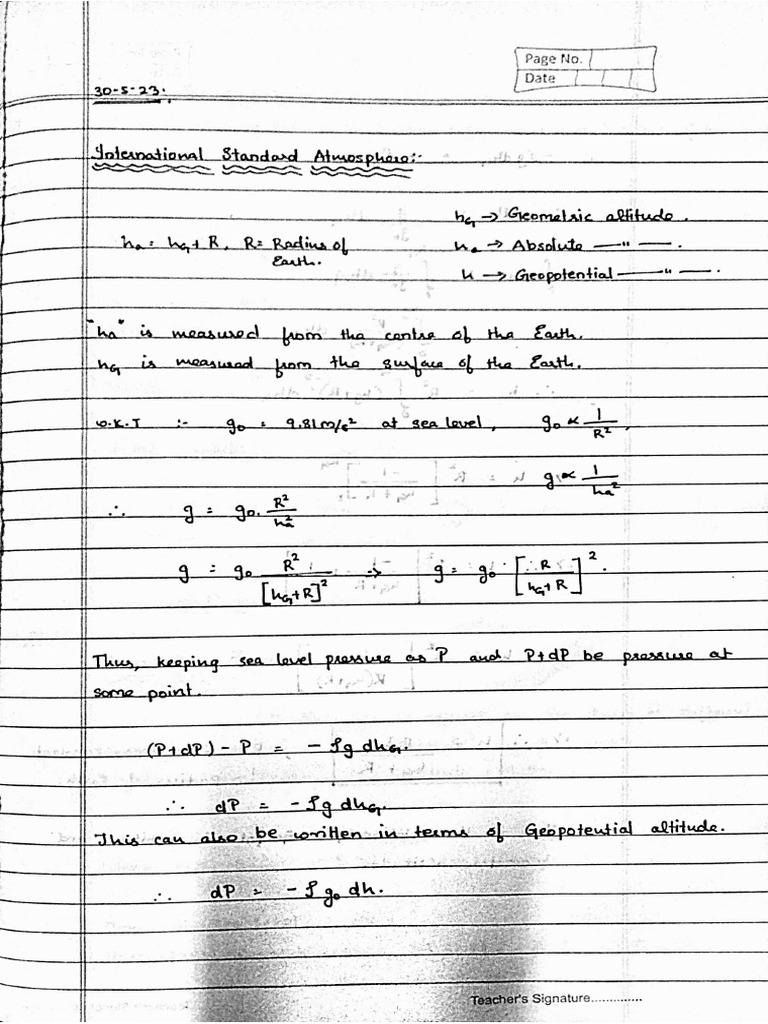 Page No.
Date
30-5-23.
International Standard Atmosphere:-
hG → Geometric altitude.
ha = hG + R, R = Radius of Earth.
ha → Absolute —"—.
h → Geopotential —"—.
"ha" is measured from the centre of the Earth.
hG is measured from the surface of the Earth.
W.K.T :- g₀ = 9.81m/s² at sea level, g₀ ∝ 1/R².
g ∝ 1/ha²
∴ g = g₀. R²/ha²
g = g₀ R²/[hG+R]² → g = g₀ [R/(hG+R)]².
Thus, keeping sea level pressure as P and P+dP be pressure at
some point.
(P+dP) - P = - ρg dhG.
∴ dP = - ρg dhG.
This can also be written in terms of Geopotential altitude.
∴ dP = - ρ g₀ dh.
Teacher's Signature.............